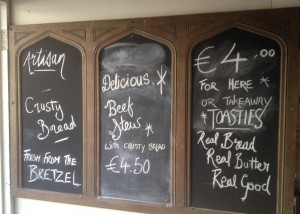 Artisan
Crusty
Bread
FRESH FROM THE
BRETZEL
Delicious
Beef
Stew
WITH CRUSTY BREAD
€4.50
€4.00
FOR HERE
OR TAKEAWAY
TOASTIES
Real Bread
Real Butter
Real Good